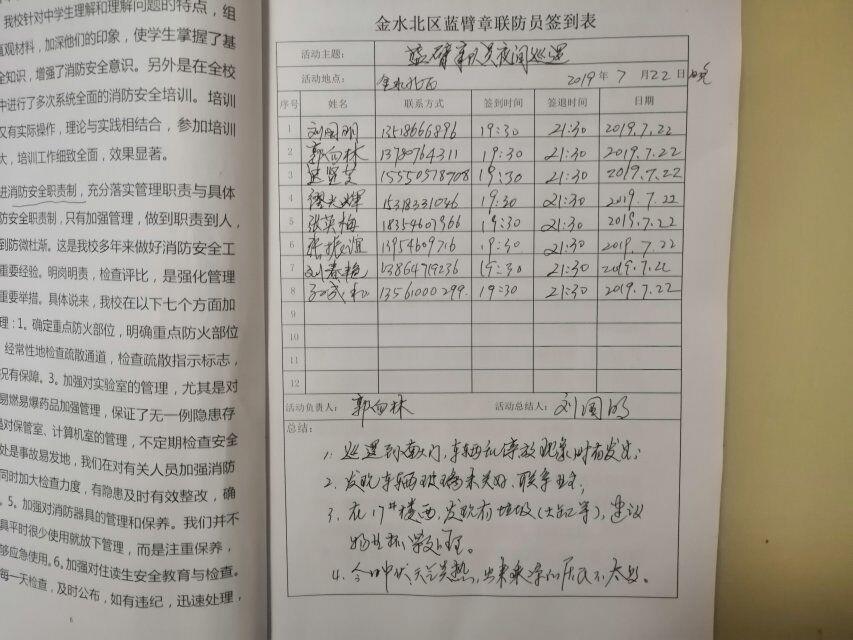 我校针对中学生理解和理解问题的特点，组
直观材料，加深他们的印象，使学生掌握了基
全知识，增强了消防安全意识。另外是在全校
中进行了多次系统全面的消防安全培训。培训
又有实际操作，理论与实践相结合，参加培训
大，培训工作细致全面，效果显著。
进消防安全职责制，充分落实管理职责与具体
防安全职责制，只有加强管理，做到职责到人，
到防微杜渐。这是我校多年来做好消防安全工
重要经验。明岗明责，检查评比，是强化管理
重要举措。具体说来，我校在以下七个方面加
理：1。确定重点防火部位，明确重点防火部位
经常性地检查疏散通道，检查疏散指示标志，
况有保障。3。加强对实验室的管理，尤其是对
易燃易爆药品加强管理，保证了无一例隐患存
强对保管室、计算机室的管理，不定期检查安全
处是事故易发地，我们在对有关人员加强消防
同时加大检查力度，有隐患及时有效整改，确
。5。加强对消防器具的管理和保养。我们并不
具平时很少使用就放下管理，而是注重保养，
够应急使用。6。加强对住读生安全教育与检查。
每一天检查，及时公布，如有违纪，迅速处理，
6
金水北区蓝臂章联防员签到表
活动主题： 蓝臂章队员夜间巡逻
活动地点： 金水北区 2019年7月22日
序号 姓名 联系方式 签到时间 签退时间 日期
1 刘国明 13518666896 19:30 21:30 2019.7.22
2 郭向林 13780764311 19:30 21:30 2019.7.22
3 15550578708 19:30 21:30 2019.7.22
4 15318331046 19:30 21:30 2019.7.22
5 张英梅 18354607966 19:30 21:30 2019.7.22
6 张振谊 13954609716 19:30 21:30 2019.7.22
7 刘春艳 13864719236 19:30 21:30 2019.7.22
8 13561000299 19:30 21:30 2019.7.22
9
10
11
12
活动负责人： 郭向林 活动总结人： 刘国明
总结：
1. 巡逻到南大门，车辆乱停放现象时有发生；
2. 发现车辆玻璃未关好，联系车主；
3. 在17#楼西，发现有垃圾（大缸等），建议
物业抓紧处理。
4. 今日中伏天气炎热，出来乘凉的居民不太多。